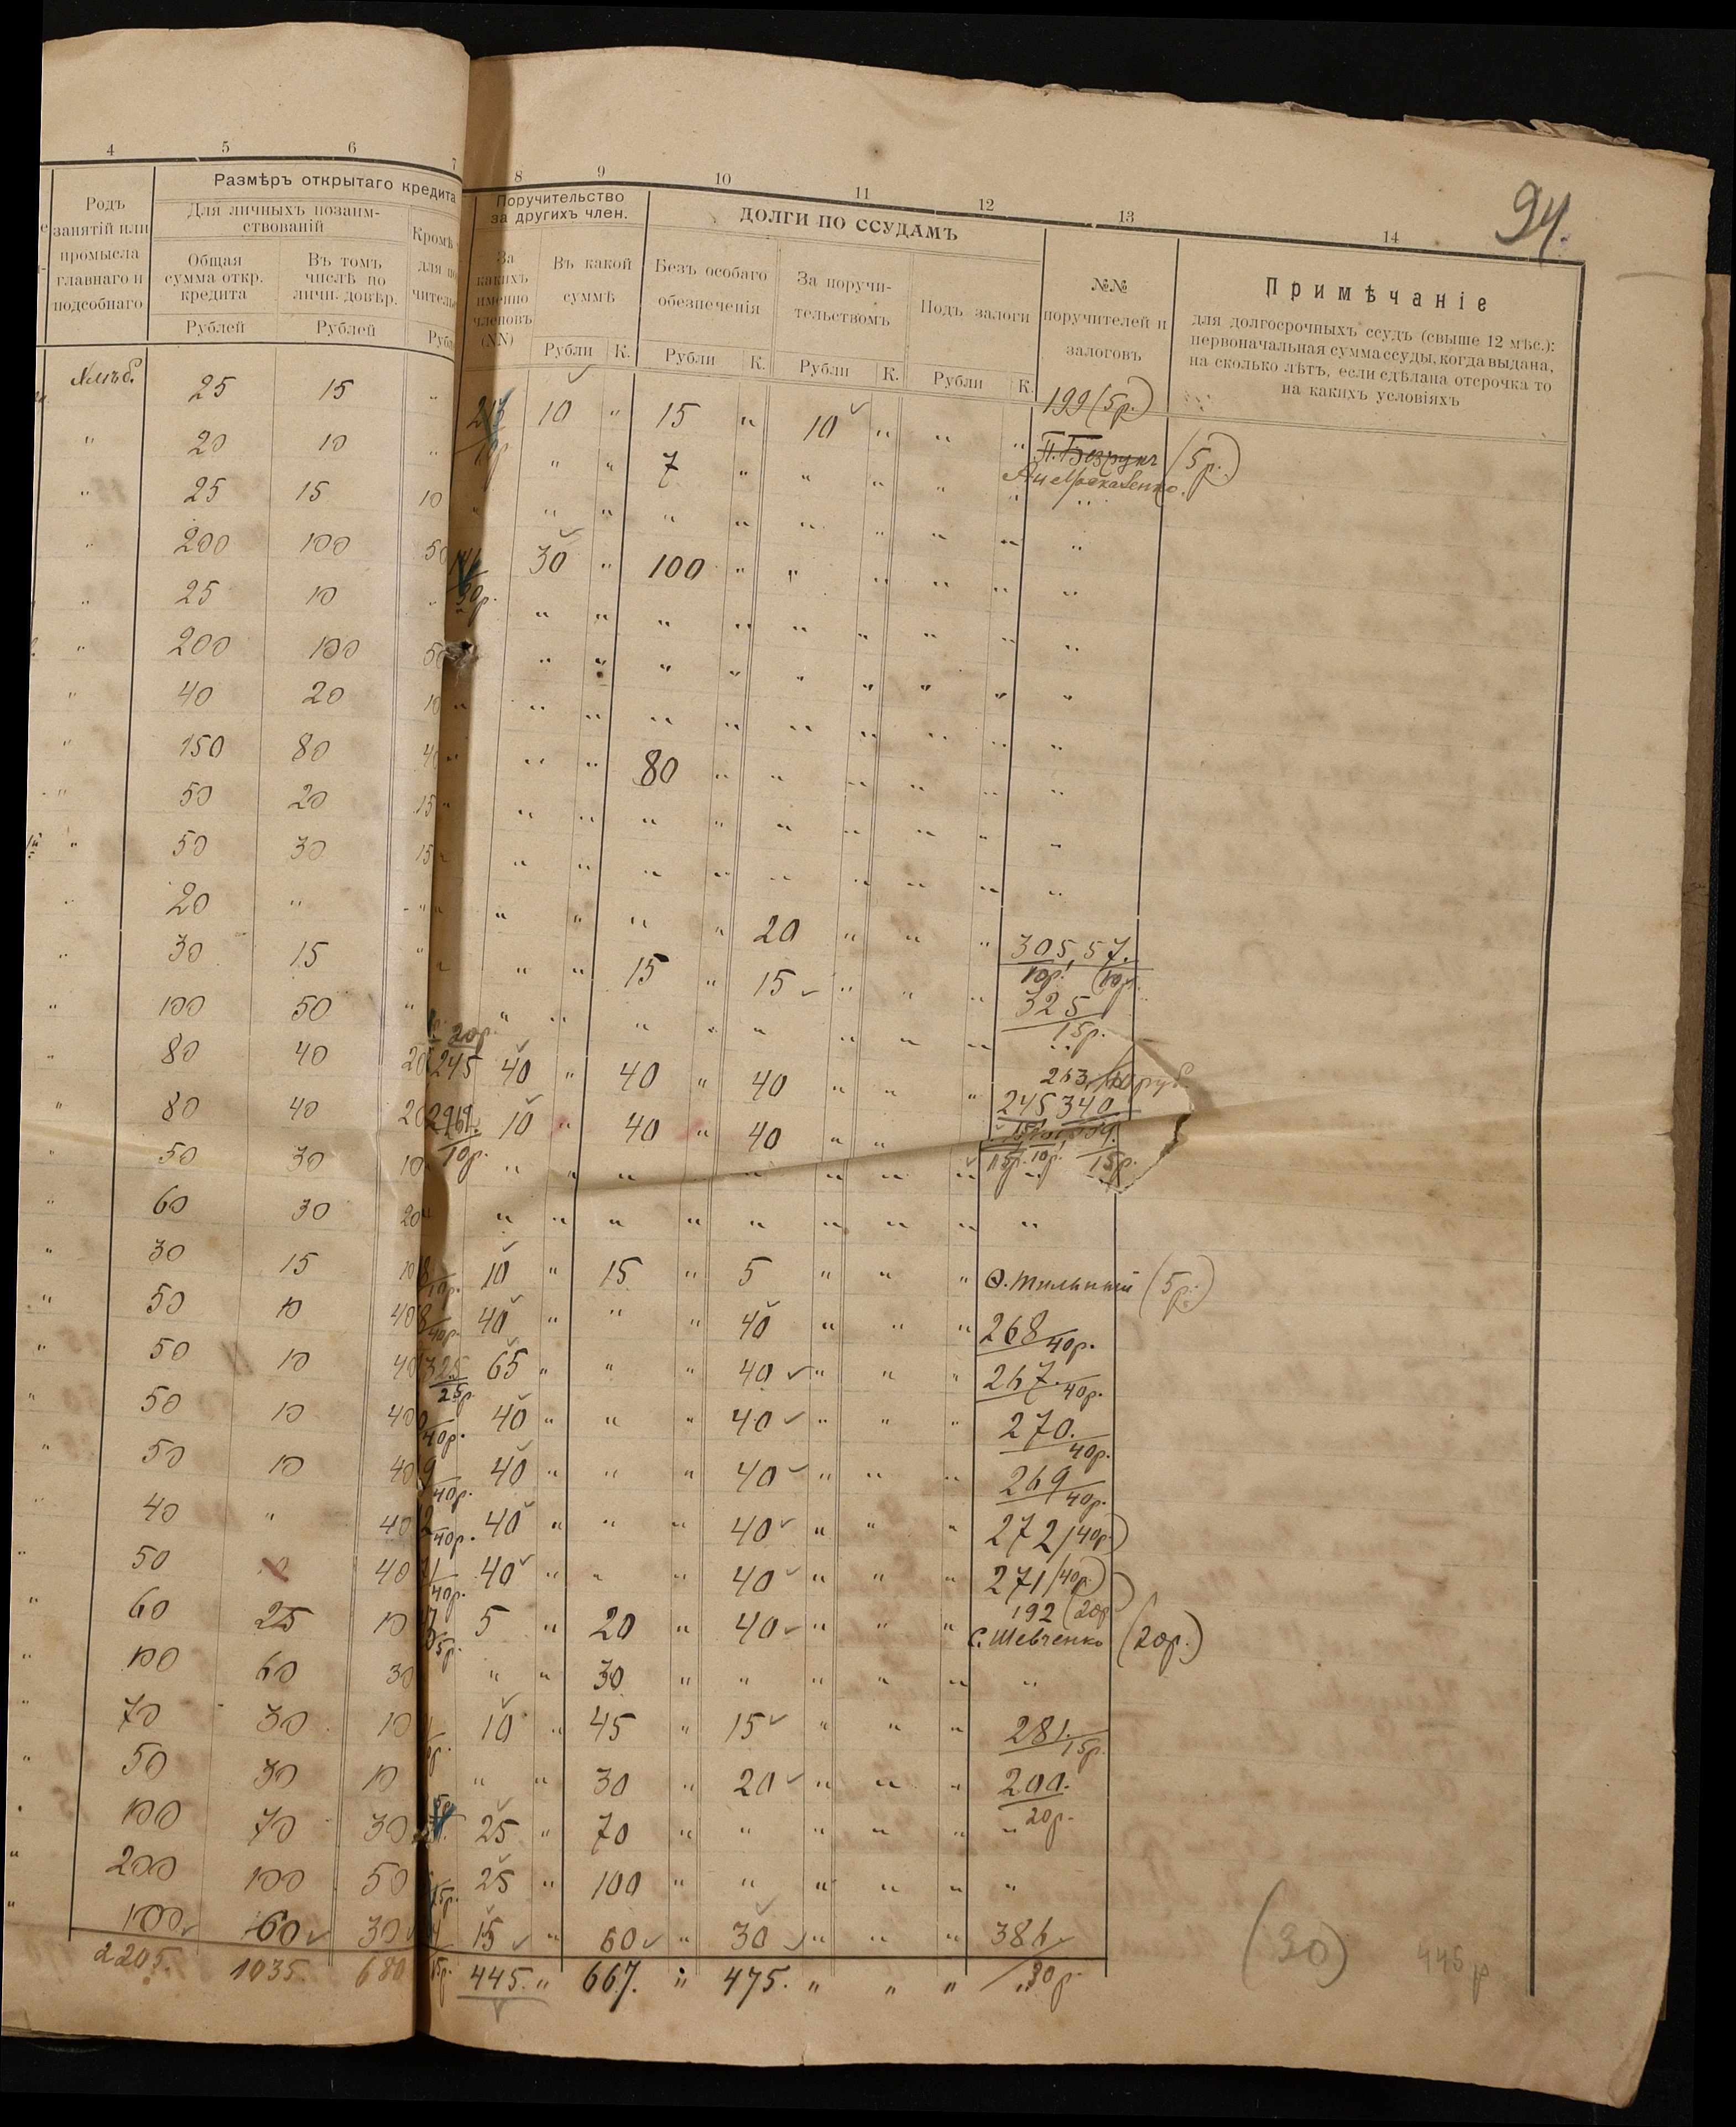 94.
4 5 6 7 8 9 10 11 12 13 14
Родъ занятій или промысла главнаго и подсобнаго
Размѣръ открытаго кредита
Для личныхъ позаимствованій
Общая сумма откр. кредита
Рублей
Въ томъ числѣ по личн. довѣр.
Рублей
Кромѣ
Поручительство за другихъ член.
За какихъ именно членовъ (NN)
Въ какой суммѣ
Рубли К.
ДОЛГИ ПО ССУДАМЪ
Безъ особаго обезпеченія
Рубли К.
За поручительствомъ
Рубли К.
Подъ залоги
Рубли К.
№№ поручителей и залоговъ
Примѣчаніе
для долгосрочныхъ ссудъ (свыше 12 мѣс.):
первоначальная сумма ссуды, когда выдана,
на сколько лѣтъ, если сдѣлана отсрочка то
на какихъ условіяхъ
25 15 " 10 " 15 " 10 " " " 199 (5р.)
" 20 10 " " " 7 " " " " " П. Безрукъ (5р.)
" 25 15 10 " " " " " " " " "
" 200 100 50 30р. 30 " 100 " " " " " "
" 25 10 " " " " " " " " " "
" 200 100 50 " " " " " " " " "
" 40 20 10 " " " " " " " " " "
" 150 80 40 " " " 80 " " " " " "
" 50 20 15 " " " " " " " " " "
" 50 30 15 " " " " " " " " " "
" 20 " " " " " " " 20 " " " 305, 57.
10р. 10р.
" 30 15 " " " " 15 " 15 " " " 325
15р.
" 100 50 " " " " " " " " " " "
20р.
" 80 40 20 245 40 " 40 " 40 " " " 263
245 340
" 80 40 20 10р. 10 " 40 " 40 " "
15р. 10р. 15р.
" 50 30 10 " " " " " " " " "
" 60 30 20 " " " " " " " " " "
" 30 15 10 10 " 15 " 5 " " " (5р.)
" 50 10 40 40р. 40 " " " 40 " " " 268 40р.
" 50 10 40 325 25р. 65 " " " 40 " " " 267. 40р.
" 50 10 40 40р. 40 " " " 40 " " " 270. 40р.
" 50 10 40 40р. 40 " " " 40 " " " 269 40р.
" 40 " 40 40р. 40 " " " 40 " " " 272 (40р)
" 50 40 40р. 40 " " " 40 " " " 271 (40р)
192 (20р)
" 60 25 10 5р. 5 " 20 " 40 " " " С. Шевченко (20р.)
" 100 60 30 " " 30 " " " " " "
" 70 30 10 10 " 45 " 15 " " " 281. 15р.
" 50 30 10 " " 30 " 20 " " " 200. 20р.
" 100 70 30 25 " 70 " " " " " "
" 200 100 50 25 " 100 " " " " " "
" 100 60 30 15 " 60 " 30 " " " 386
30р.
2205. 1035. 680 445. " 667. " 475. " " "
(30) 445 р